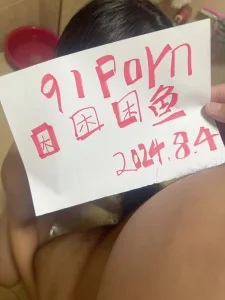 91Porn
因困困鱼
2024.8.4